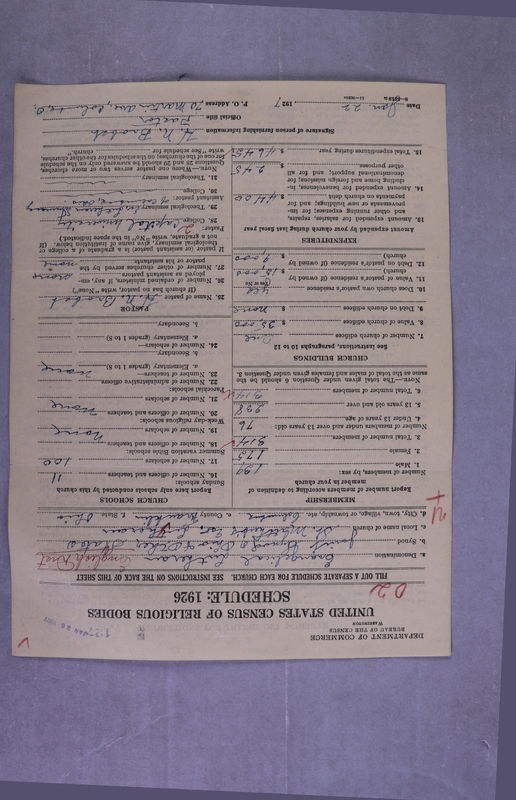 DEPARTMENT OF COMMERCE
BUREAU OF THE CENSUS
WASHINGTON
UNITED STATES CENSUS OF RELIGIOUS BODIES
SCHEDULE: 1926
FILL OUT A SEPARATE SCHEDULE FOR EACH CHURCH. SEE INSTRUCTIONS ON THE BACK OF THIS SHEET
a. Denomination Evangelical Lutheran
b. Synod Joint Synod Ohio & Other States
c. Local name of church St. Matthew's Ev. Lutheran
d. City, town, village, or township, etc. Columbus e. County Franklin f. State Ohio
MEMBERSHIP
Report number of members according to definition of member in your church
Number of members, by sex:
1. Male
2. Female 175
3. Total number of members 314
Number of members under and over 13 years old:
4. Under 13 years of age 76
5. 13 years and over 238
6. Total number of members 314
NOTE.—The total given under Question 6 should be the same as the total of males and females given under Question 3.
CHURCH BUILDINGS
See instructions, paragraphs 10 to 12
7. Number of church edifices One
8. Value of church edifices $ 35000
9. Debt on church edifices $ none
10. Does church own pastor's residence yes
(Yes or No)
11. Value of pastor's residence (If owned by church) $
12. Debt on pastor's residence (If owned by church) $
EXPENDITURES
Amount expended by your church during last fiscal year
13. Amount expended for salaries, repairs, and other running expenses; for improvements or new buildings; and for payments on church debt $ 4400
14. Amount expended for benevolences, including home and foreign missions; for denominational support; and for all other purposes $ 245
15. Total expenditures during year $ 4645
CHURCH SCHOOLS
Report here only schools conducted by this church
Sunday schools:
16. Number of officers and teachers 11
17. Number of scholars 100
Summer vacation Bible schools:
18. Number of officers and teachers none
19. Number of scholars
Week-day religious schools:
20. Number of officers and teachers none
21. Number of scholars
Parochial schools:
22. Number of administrative officers
23. Number of teachers none
a. Elementary (grades 1 to 8)
b. Secondary
24. Number of scholars—
a. Elementary (grades 1 to 8)
b. Secondary
PASTOR
25. Name of pastor H. N. Brobst
(If church has no pastor, write "None")
26. Number of ordained ministers, if any, employed as assistant pastors none
27. Number of other churches served by the pastor or his assistants none
If pastor (or assistant pastor) is a graduate of a college or theological seminary, give name of institution below. (If not a graduate, write "No" in the space indicated.)
Pastor:
28. College Capital University
29. Theological seminary
Assistant pastor:
30. College
31. Theological seminary
NOTE.—Where one pastor serves two or more churches, Questions 25 and 27 should be answered only on the schedule for one of the churches; on the schedules for the other churches, write "See schedule for church."
Signature of person furnishing information H. N. Brobst
Official title Pastor
Date Jan. 22 1927 P. O. Address